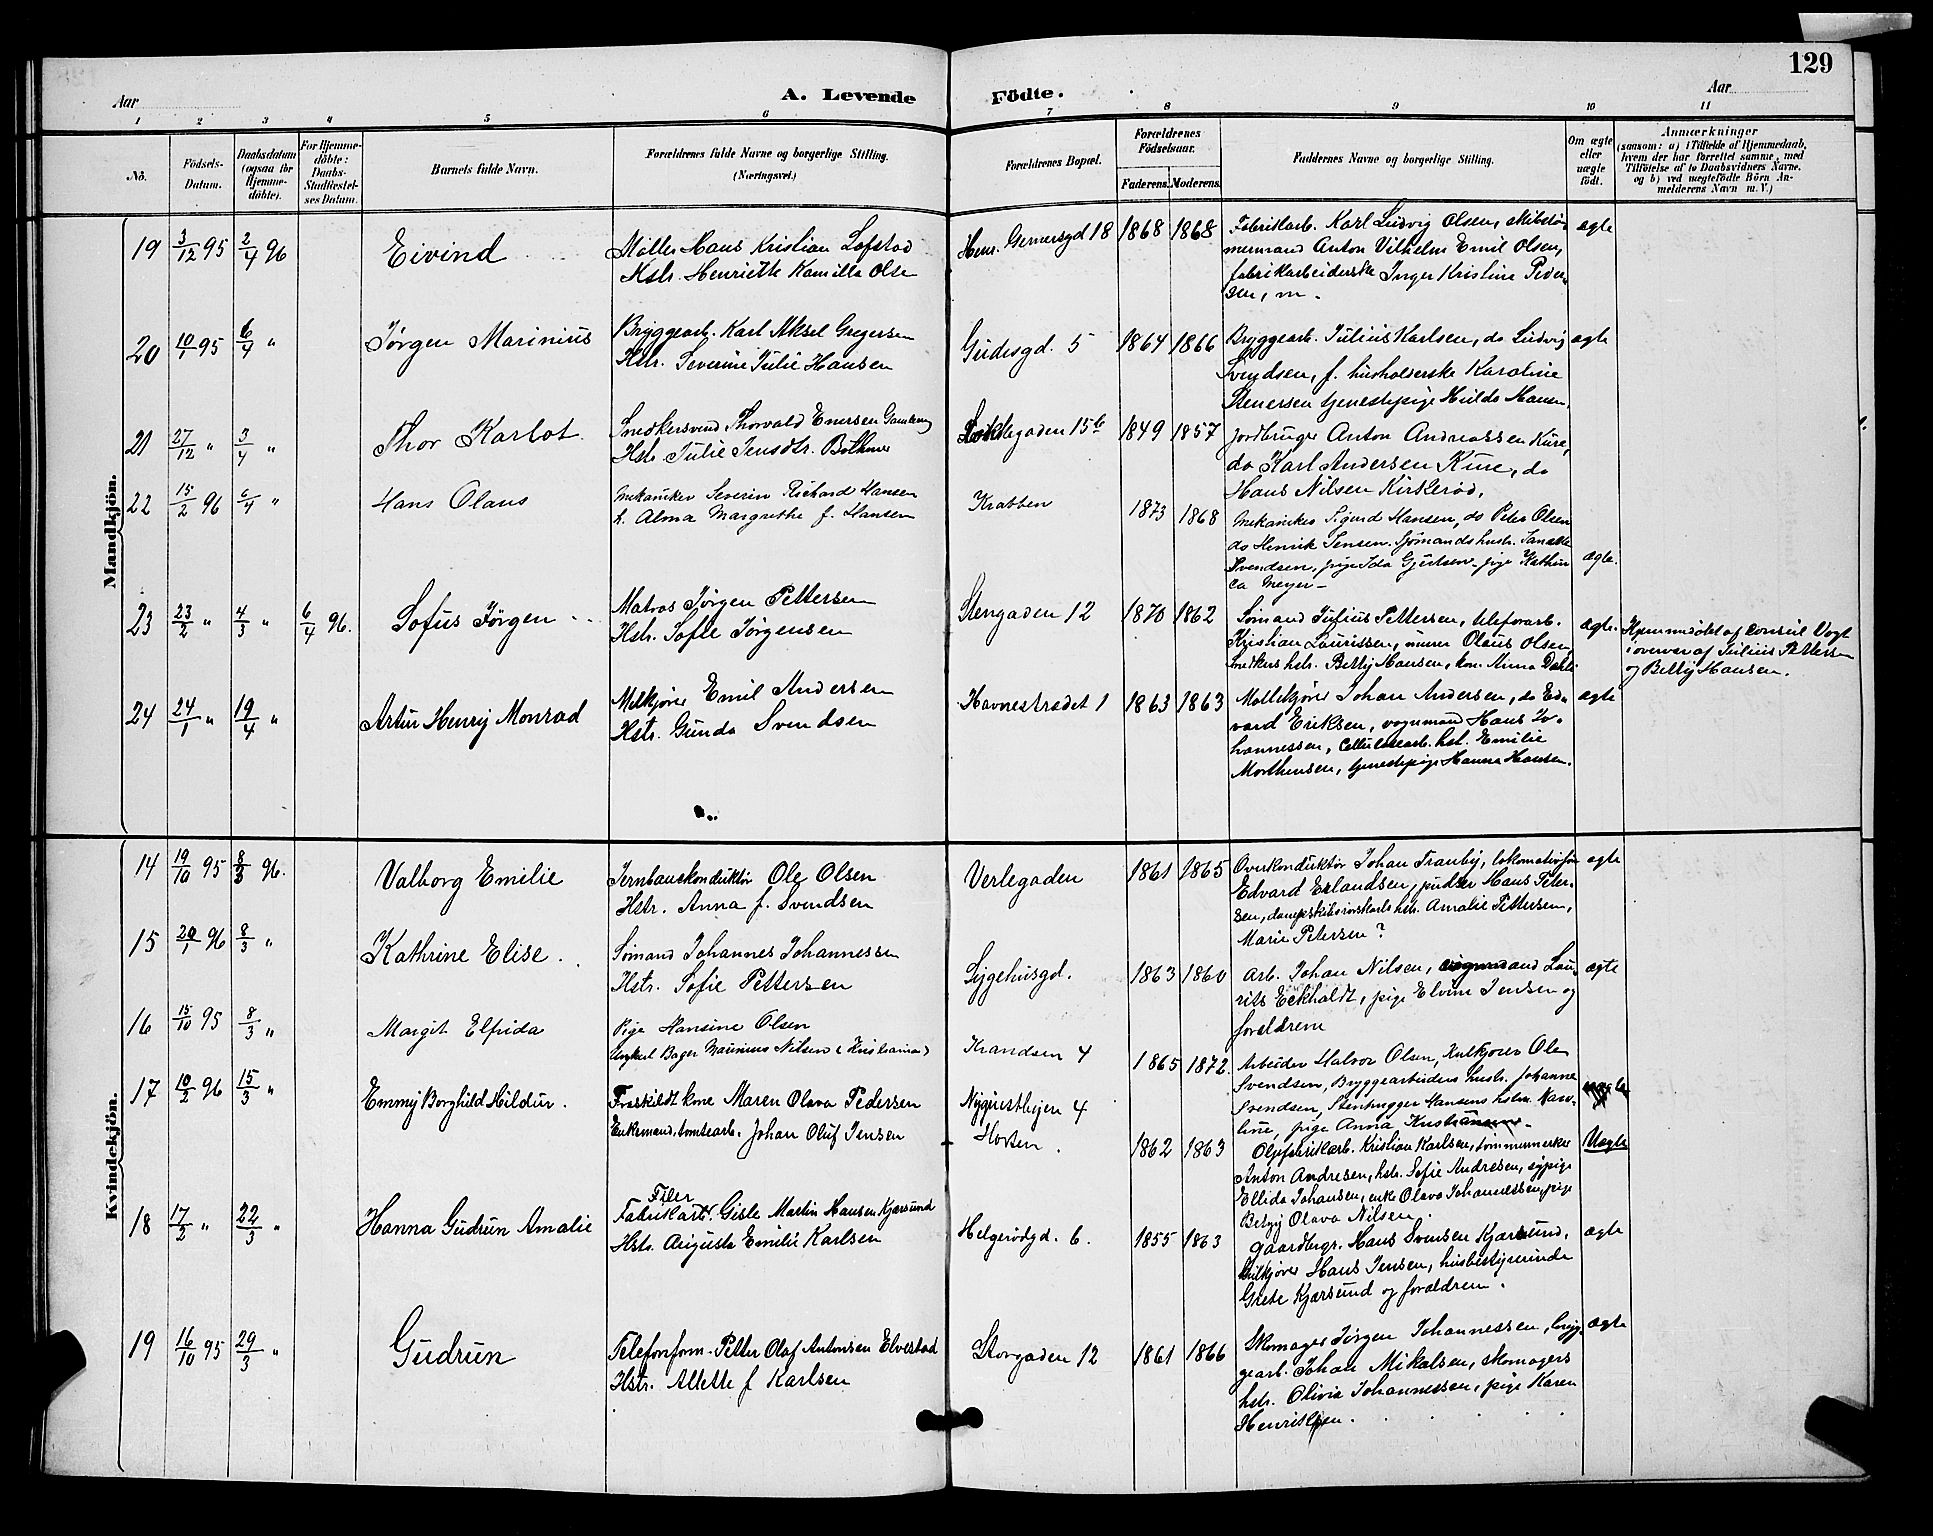 129
Aar
A. Levende Födte.
Aar
1 2 3 4 5 6 7 8 9 10 11
No.
Födsels-Datum.
Daabsdatum (ogsaa for Hjemme-döbte).
For Hjemme-döbte: Daabs-Stadfæstel-ses Datum.
Barnets fulde Navn.
Forældrenes fulde Navne og borgerlige Stilling.
(Næringsvei.)
Forældrenes Bopæl.
Forældrenes Födselsaar.
Faderens. Moderens.
Faddernes Navne og borgerlige Stilling.
Om ægte eller uægte födt.
Anmærkninger
(saasom: a) i Tilfælde af Hjemmedaab,
hvem der har forrettet samme, med
Tilföielse af to Daabsvidners Navne.
og b) ved uægtefödte Börn An-
melderens Navn m. V.)
Mandkjön.
19 3/12 95 2/4 96 Eivind
Møller Hans Kristian Lofstad
Hstr. Henriette Kamilla Olse
Henr. Gernersgd 18 1868 1868
Fabrikarb. Karl Ludvig Olsen, skibstøm-
mermand Anton Vilhelm Emil Olsen,
fabrikarbeiderske Inger Kristine Peder-
sen, m.
ægte
20 10/1 95 6/4 " Jørgen Marinius
Bryggearb. Karl Aksel Gregersen
Hstr. Severine Julie Hansen
Gudesgd. 5 1864 1866
Bryggearb. Julius Karlsen, do Ludvig
Svendsen, f. husholderske Karoline
Stenersen tjenestepige Hulda Hansen.
ægte
21 27/12 " 3/4 " Thor Karlot.
Snedkersvend Thorvald Enersen
Hstr. Julie Jensdtr.
15b 1849 1857
Jordbruger Anton Andreassen Kure,
do Karl Andersen Kure, do
Hans Nilsen Kirkerød.
22 15/2 96 6/4 " Hans Olaus
Mekaniker Severin Richard Hansen
h. Alma Margrethe f. Hansen
Krabben 1873 1868
Mekaniker Sigurd Hansen, do Peter Olsen
do Henrik Jensen. Sjømandshustr.
Svendsen, pige Ida Gjertsen - pige Kathin
ca Meyer -
ægte.
23 23/2 " 4/3 " 6/4 96. Sofus Jørgen
Matros Jørgen Pettersen
Hstr. Sofie Jørgensen
Stengaden 12 1870 1862
Sømand Julius Pettersen, telefonarb.
Kristian Lauritssen, murer Olaus Olsen,
Snedkers hstr. Betty Hansen, kone Anna
ægte.
Hjemmedøbt af Consul Vogt
i overvær af Julius Pettersen
og Betty Hansen.
24 24/1 " 19/4 " Artur Henry Monrad
Melkjører Emil Andersen
Hstr. Gunda Svendsen
Havnestrædet 1 1863 1863
Møllekjører Johan Andersen, do Ed-
vard Eriksen, vognmand Hans Jo-
hannessen, Cellulosearb. hst. Emilie
Morthensen, tjenestepige Hanna Hansen.
ægte
Kvindekjön.
14 19/10 95 8/3 96. Valborg Emilie
Jernbanekonduktør Ole Olsen
Hstr. Anna f. Svendsen
Verlegaden 1861 1865
Overkonduktør Johan Tranby, lokomotivfør
Edvard Erlandsen, pudser Hans Peter-
sen, dampskibsrorskarls hstr. Amalie Pettersen,
Marie Petersen?
ægte
15 20/1 96 8/3 " Kathrine Elise.
Sømand Johannes Johannessen
Hstr. Sofie Pettersen
Sygehusgd. 1863 1860
Arb. Johan Nilsen, vognmand Lau-
rits Eckholdt, pige Elvine Jensen og
forældrene
ægte
16 15/10 95 8/3 " Margit Elfrida
Pige Hansine Olsen
Ungkarl Bager Maurius Nilsen (Kristiania)
4 1865 1872.
Arbeider Halvor Olsen, Kulkjører Ole
Svendsen, Bryggearbeiders hustr. Johanne
Svendsen, Stenhugger Hansens hstr. Karo-
line, pige Anna
17 10/2 96 15/3 " Emmy Borghild Hildur.
Fraskildt kone Maren Olava Pedersen
Enkemand, tomtearb. Johan Oluf Jensen
4
Horten. 1862 1863
Oljefabrikarb. Kristian Karlsen, tømmermerker
Anton Andresen, hstr. Sofie Andresen, sypige
Ellida Johansen, enke Olava Johannessen, pige
Betzy Olava Nilsen.
Uægte
18 17/2 " 22/3 " Hanna Gudrun Amalie
Filer
Fabrikarb. Gisle Martin Hansen Kjærsund
Hstr. Augusta Emilie Karlsen
Helgerødgd. 6. 1855 1863
Gaardbrgr. Hans Svensen Kjærsund,
Hans Jensen, husbestyrerinde
Grete Kjærsund og forældrene.
ægte
19 16/10 95 29/3 " Gudrun
Telefonform. Petter Olaf Antonsen Elvestad
Hstr. Allette f Karlsen
Storgaden 12 1861 1866
Skomager Jørgen Johannessen, brygg-
gearb. Johan Mikalsen, skomagers
hstr. Olivia Johannessen, pige Karen
Henriksen.
ægte